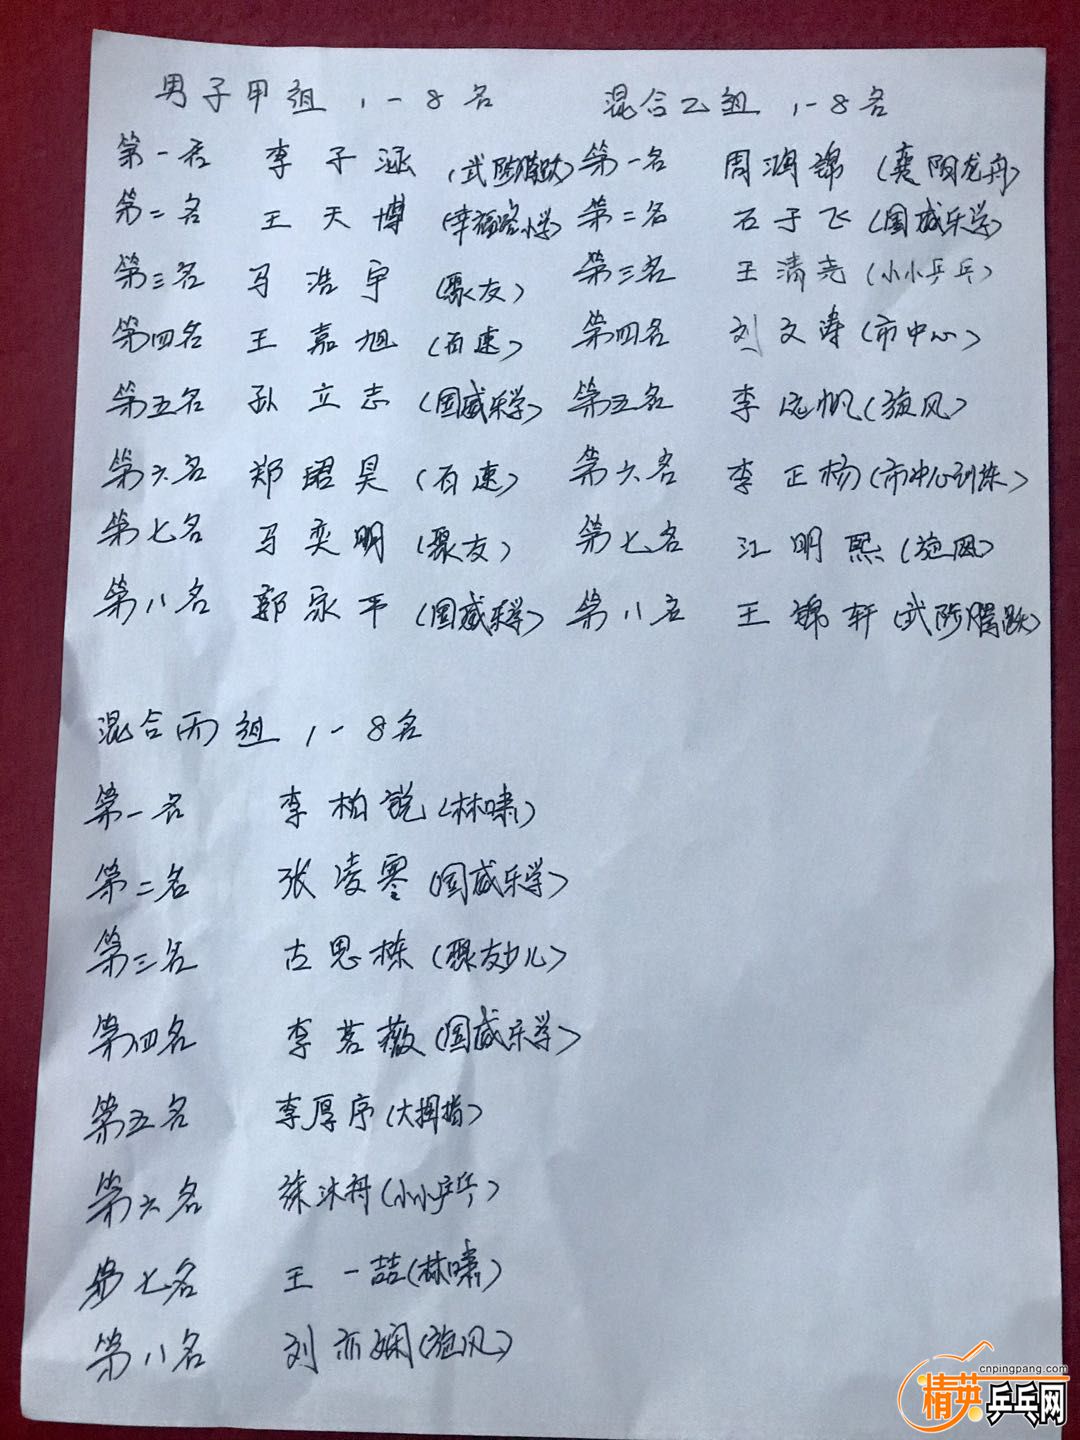 男子甲组 1-8名
第一名 李子涵 (武陟腾跃)
第二名 王天博 (幸福路小学)
第三名 马浩宇 (聚友)
第四名 王嘉旭 (百速)
第五名 孙立志 (国威乐学)
第六名 郑珺昊 (百速)
第七名 马奕明 (聚友)
第八名 郭家平 (国威乐学)
混合乙组 1-8名
第一名 周鸿锦 (襄阳龙舟)
第二名 石于飞 (国威乐学)
第三名 王清尧 (小小乒乓)
第四名 刘文涛 (市中心)
第五名 李远帆 (旋风)
第六名 李正杨 (市中心训练)
第七名 江明熙 (旋风)
第八名 王锦轩 (武陟腾跃)
混合丙组 1-8名
第一名 李柏锐 (林啸)
第二名 张凌霄 (国威乐学)
第三名 古思栋 (聚友少儿)
第四名 李茗薇 (国威乐学)
第五名 李厚序 (大拇指)
第六名 (小小乒乓)
第七名 王一喆 (林啸)
第八名 刘亦娴 (旋风)
cnpingpang.com
精英乒乓网